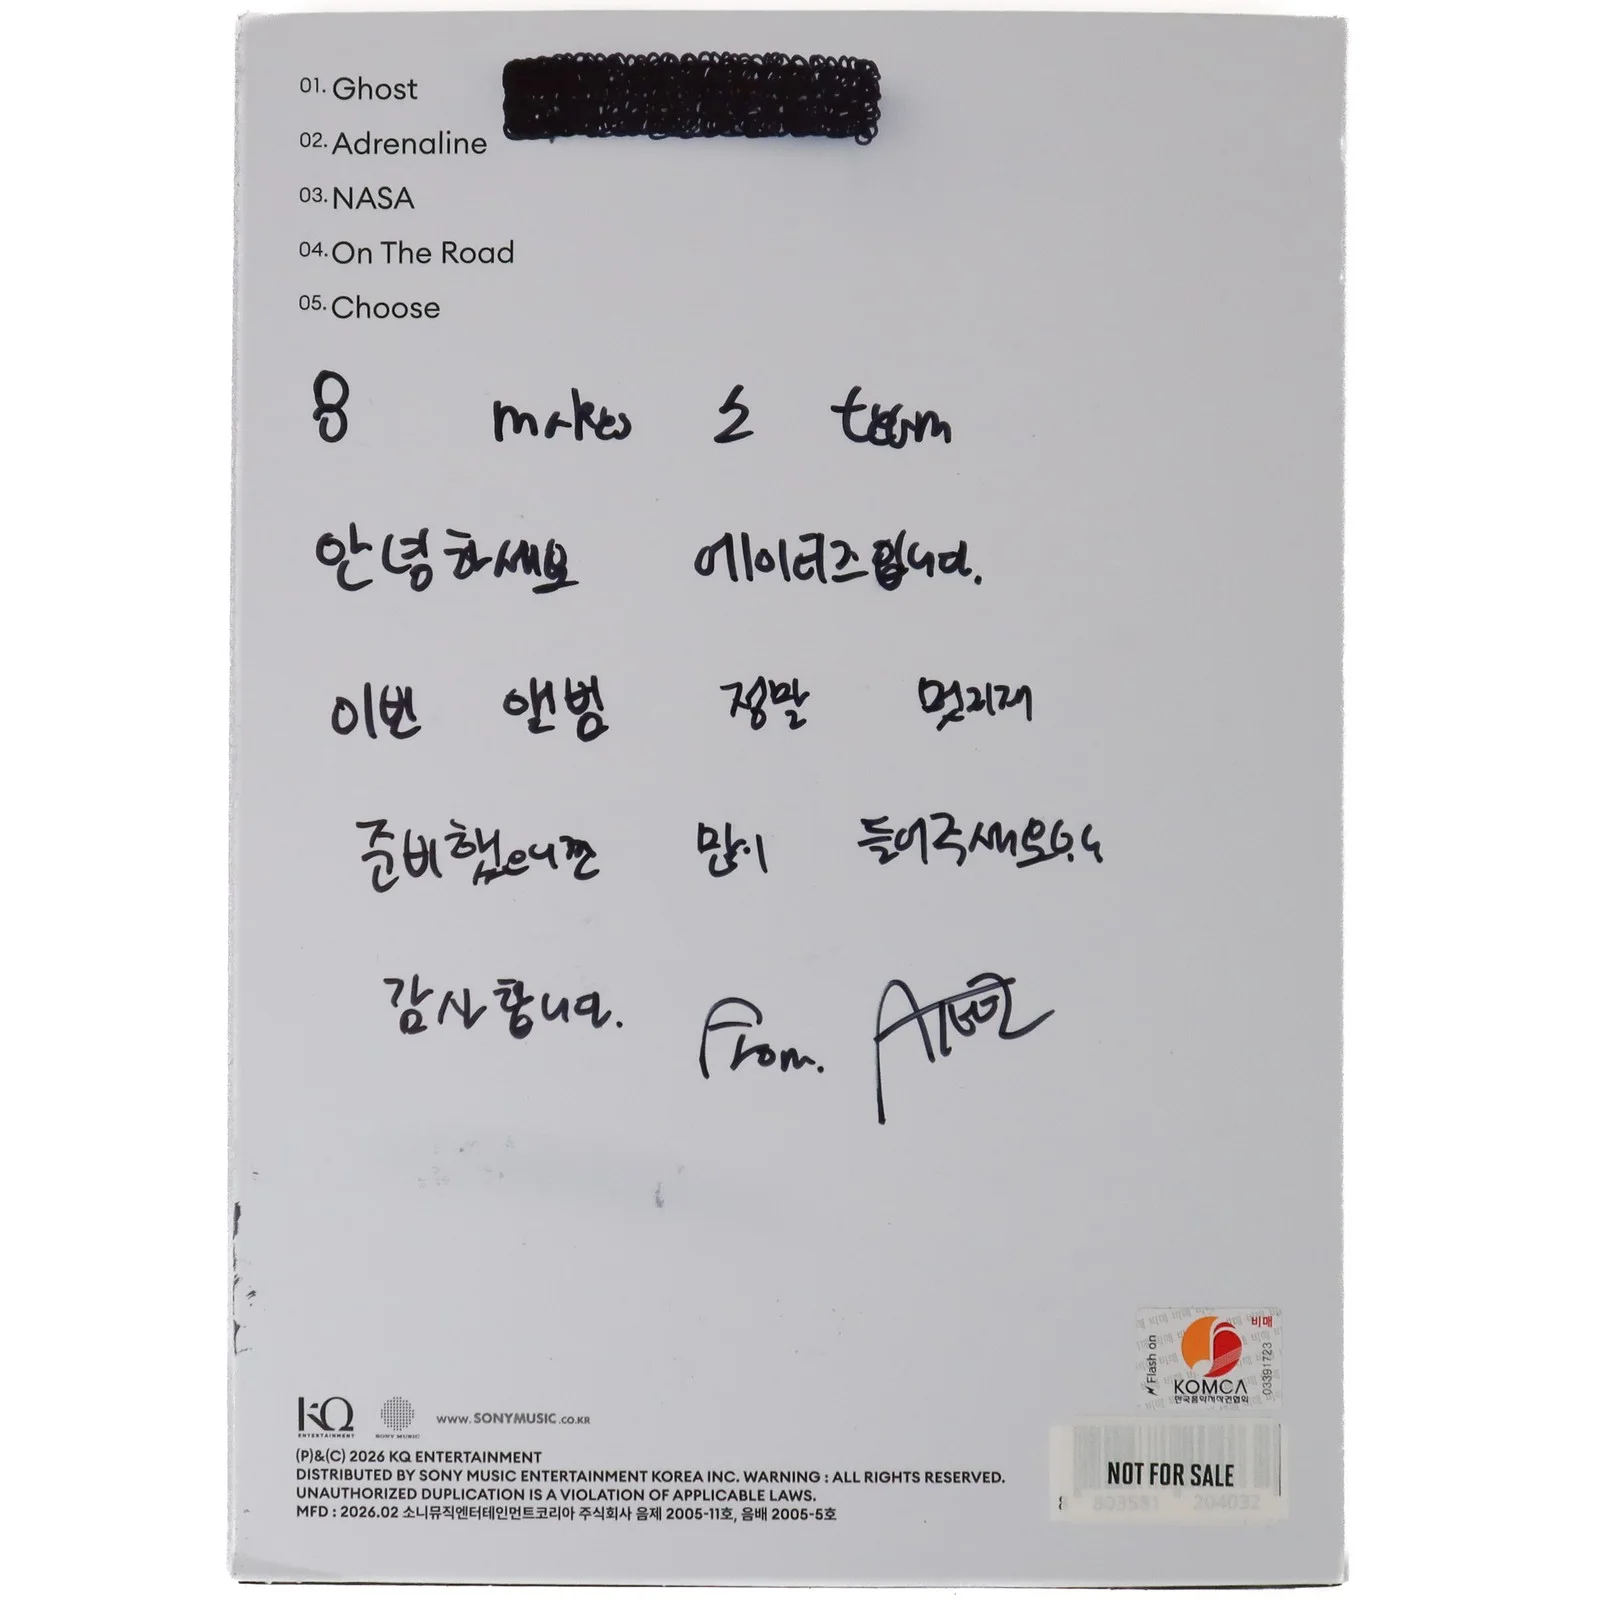 01. Ghost
02. Adrenaline
03. NASA
04. On The Road
05. Choose
8 makes 1 team
안녕하세요 에이티즈입니다.
이번 앨범 정말 멋지게
준비했으니까 많이 들어주세요
감사합니다. From. ATEEZ
비매
Flash on
KOMCA
한국음악저작권협회
03391723
KQ
ENTERTAINMENT
SONY MUSIC
WWW.SONYMUSIC.CO.KR
(P)&(C) 2026 KQ ENTERTAINMENT
DISTRIBUTED BY SONY MUSIC ENTERTAINMENT KOREA INC. WARNING : ALL RIGHTS RESERVED.
UNAUTHORIZED DUPLICATION IS A VIOLATION OF APPLICABLE LAWS.
MFD : 2026.02 소니뮤직엔터테인먼트코리아 주식회사 음제 2005-11호, 음배 2005-5호
NOT FOR SALE
8 803581 204032